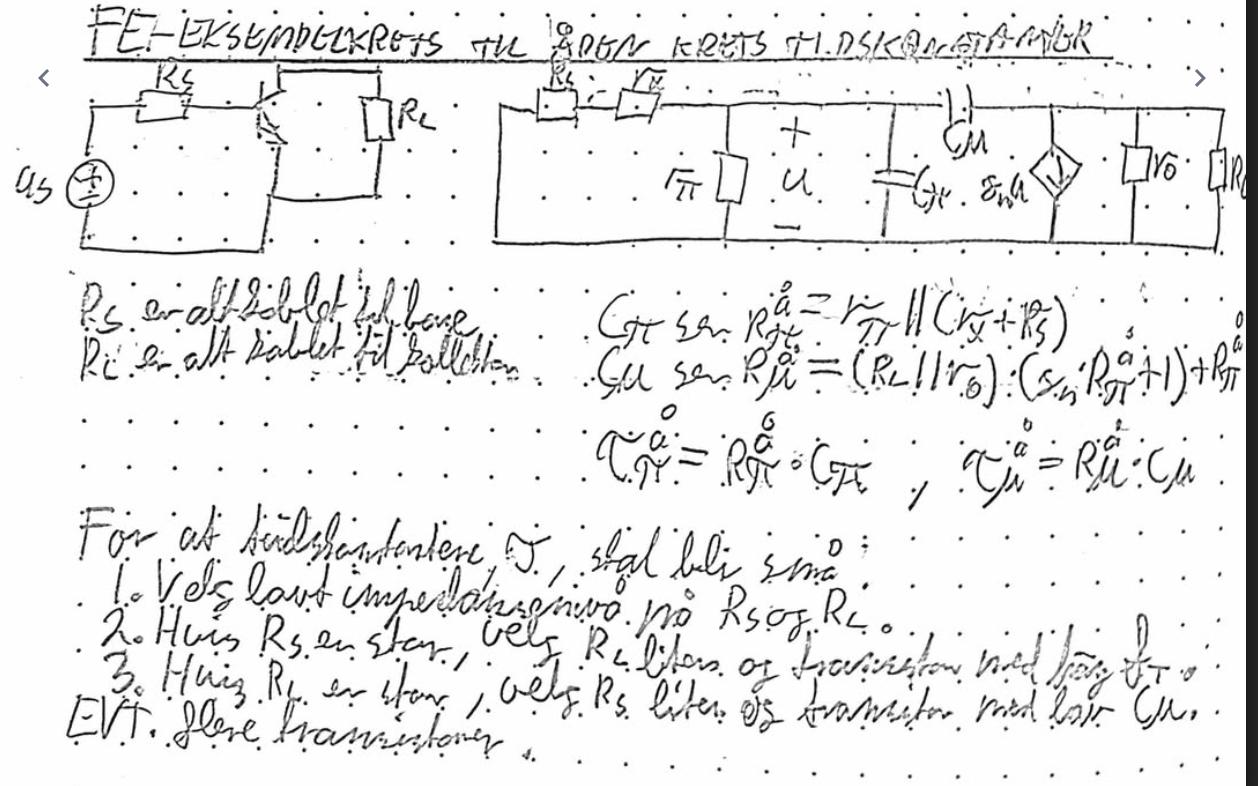 FE-EKSEMPELKRETS TIL ÅPEN KRETS TIDSKONSTANTER
Rs
RL
us
Rs
rx
rπ
+
u
-
Cπ
Cμ
gmu
ro
RL
Rs er alt koblet til base
RL er alt koblet til kollektor.
Cπ ser Rπ^å = rπ||(rx+Rs)
Cμ ser Rμ^å = (RL||ro)·(gm·Rπ^å+1)+Rπ^å
τπ^å = Rπ^å·Cπ , τμ^å = Rμ^å·Cμ
For at tidskonstantene, τ, skal bli små:
1. Velg lavt impedansenivå på Rs og RL.
2. Hvis Rs er stor, velg RL liten og transistor med høy fT.
3. Hvis RL er stor, velg Rs liten og transistor med lav Cμ.
EVT. flere transistorer.